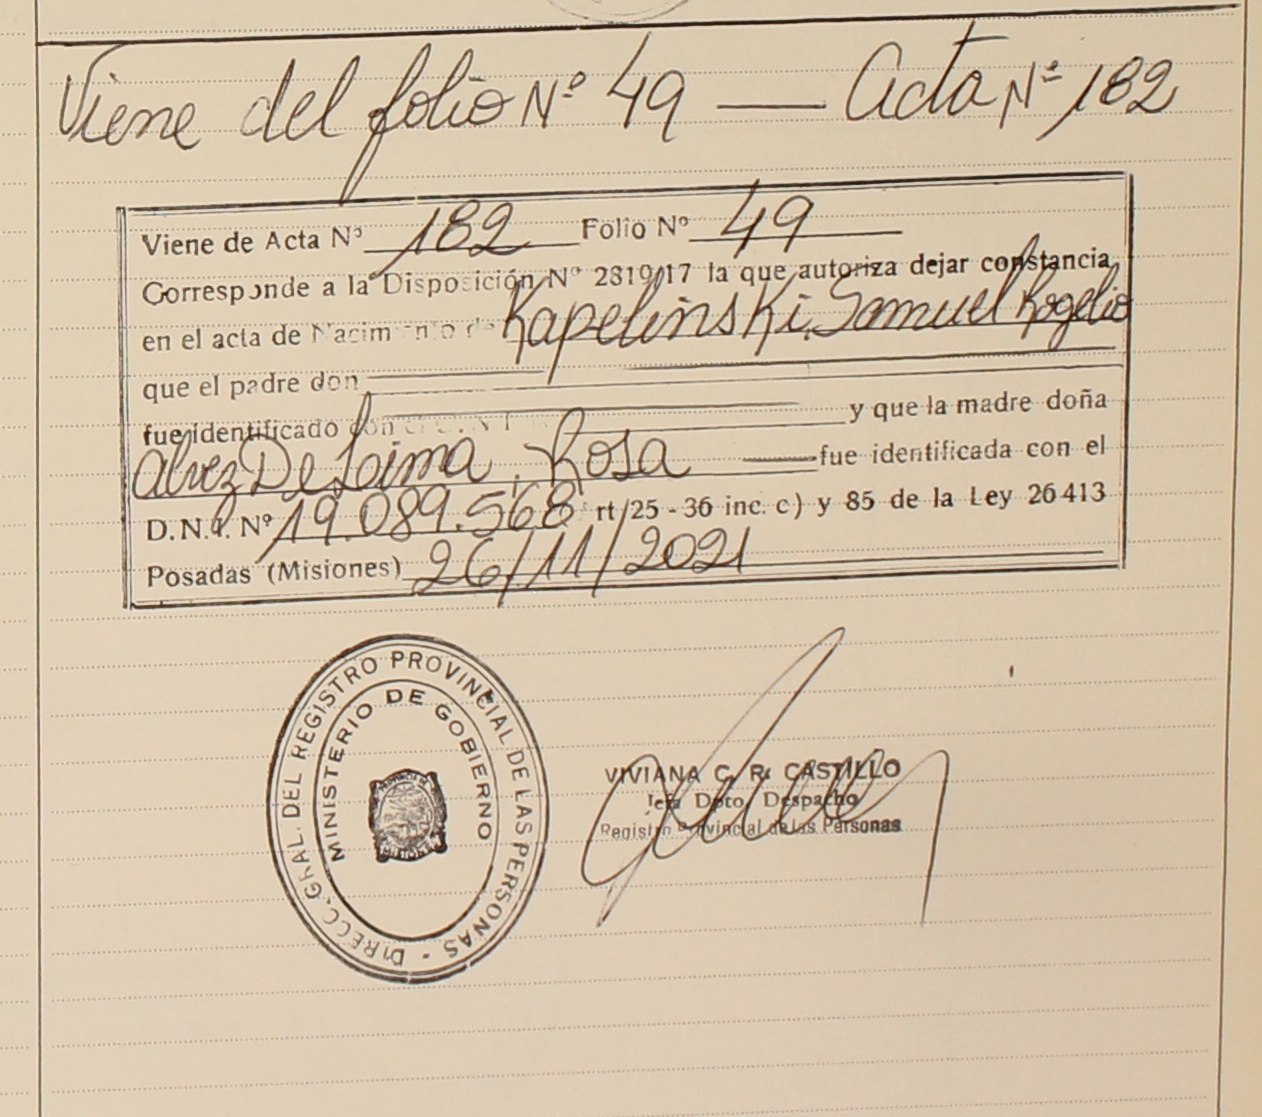 Viene del folio Nº 49 — Acta Nº 182
Viene de Acta Nº 182 Folio Nº 49
Corresponde a la Disposición Nº 2819/17 la que autoriza dejar constancia
en el acta de Nacimiento de Kapelinski, Samuel Rogelio
que el padre don
fue identificado con el D.N.I. y que la madre doña
Alvez De Lima, Rosa — fue identificada con el
D.N.I. Nº 19.089.568 rt/25 - 36 inc. c) y 85 de la Ley 26413
Posadas (Misiones) 26/11/2021
DIRECC. GRAL. DEL REGISTRO PROVINCIAL DE LAS PERSONAS -
MINISTERIO DE GOBIERNO
MISIONES
VIVIANA C. R. CASTILLO
Jefa Dpto. Despacho
Registro Provincial de las Personas